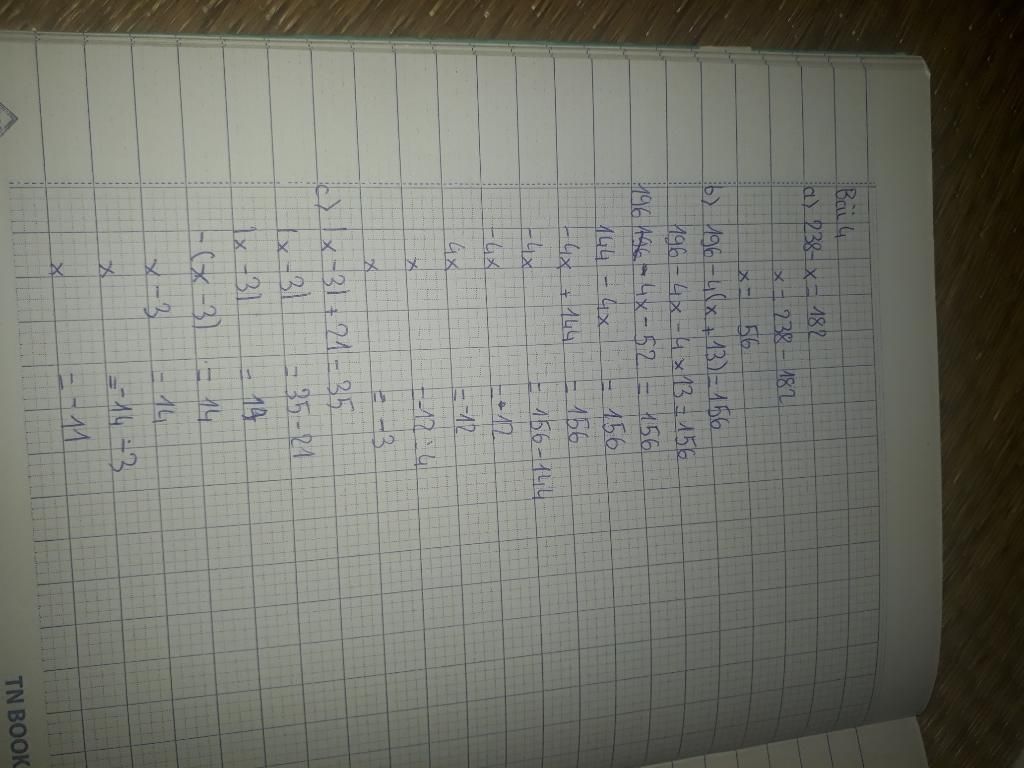 Bài 4
a) 238 - x = 182
x = 238 - 182
x = 56
b) 196 - 4(x + 13) = 156
196 - 4x - 4 x 13 = 156
196 - 4x - 52 = 156
144 - 4x = 156
-4x + 144 = 156
-4x = 156 - 144
-4x = 12
4x = -12
x = -12 : 4
x = -3
c) |x - 3| + 21 = 35
|x - 3| = 35 - 21
|x - 3| = 14
-(x - 3) = 14
x - 3 = 14
x = -14 + 3
x = -11
TN BOOK